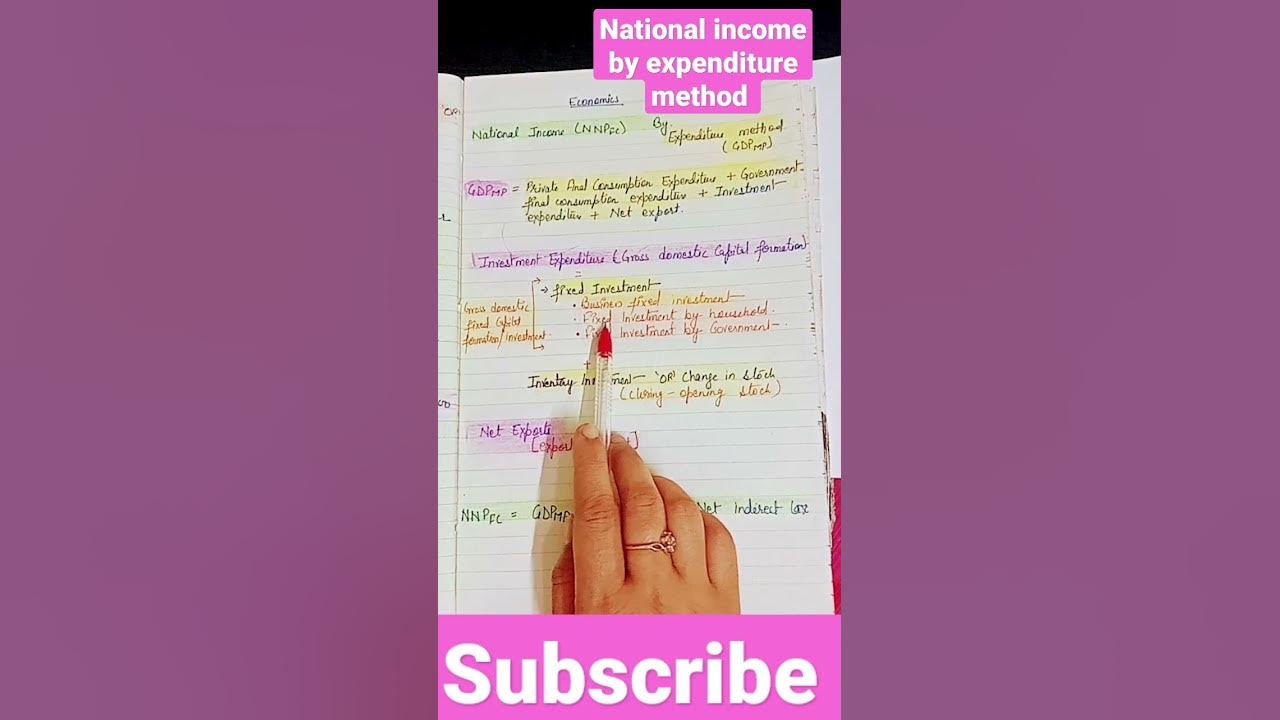 National income
by expenditure
method
Economics
National Income (NNPFC) By Expenditure method
(GDPMP)
GDPMP = Private final Consumption Expenditure + Government
final consumption expenditure + Investment
expenditure + Net export.
Investment Expenditure (Gross domestic Capital formation)
=
→ fixed Investment
• Business fixed investment
• Fixed Investment by household.
• Investment by Government
Gross domestic
fixed Capital
formation/investment
+
Inventory 'OR' Change in stock
(Closing - opening stock)
Net Exports
NNPFC = GDPMP Net Indirect tax
Subscribe